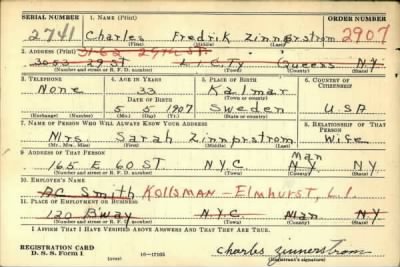 SERIAL NUMBER 1. NAME (Print) ORDER NUMBER
2741 Charles Fredrik Zinnerstrom 2907
(First) (Middle) (Last)
2. ADDRESS (Print) 3162 29TH ST.
3053 29 ST L.I.CTy Queens NY
(Number and street or R. F. D. number) (Town) (County) (State)
3. TELEPHONE 4. AGE IN YEARS 5. PLACE OF BIRTH 6. COUNTRY OF CITIZENSHIP
None 33 Kalmar
DATE OF BIRTH (Town or county)
5 5 1907 Sweden USA
(Exchange) (Number) (Mo.) (Day) (Yr.) (State or country)
7. NAME OF PERSON WHO WILL ALWAYS KNOW YOUR ADDRESS 8. RELATIONSHIP OF THAT PERSON
Mrs. Sarah Zinnerstrom Wife
(Mr., Mrs., Miss) (First) (Middle) (Last)
9. ADDRESS OF THAT PERSON Man
165 E 60 ST N.Y.C NY NY
(Number and street or R. F. D. number) (Town) (County) (State)
10. EMPLOYER'S NAME
Smith KOLLSMAN - ELMHURST, L.I.
11. PLACE OF EMPLOYMENT OR BUSINESS
120 B'way N.Y.C. Man NY
(Number and street or R. F. D. number) (Town) (County) (State)
I AFFIRM THAT I HAVE VERIFIED ABOVE ANSWERS AND THAT THEY ARE TRUE.
REGISTRATION CARD
D. S. S. Form 1 (over) 16-17105 Charles Zinnerstrom
(Registrant's signature)